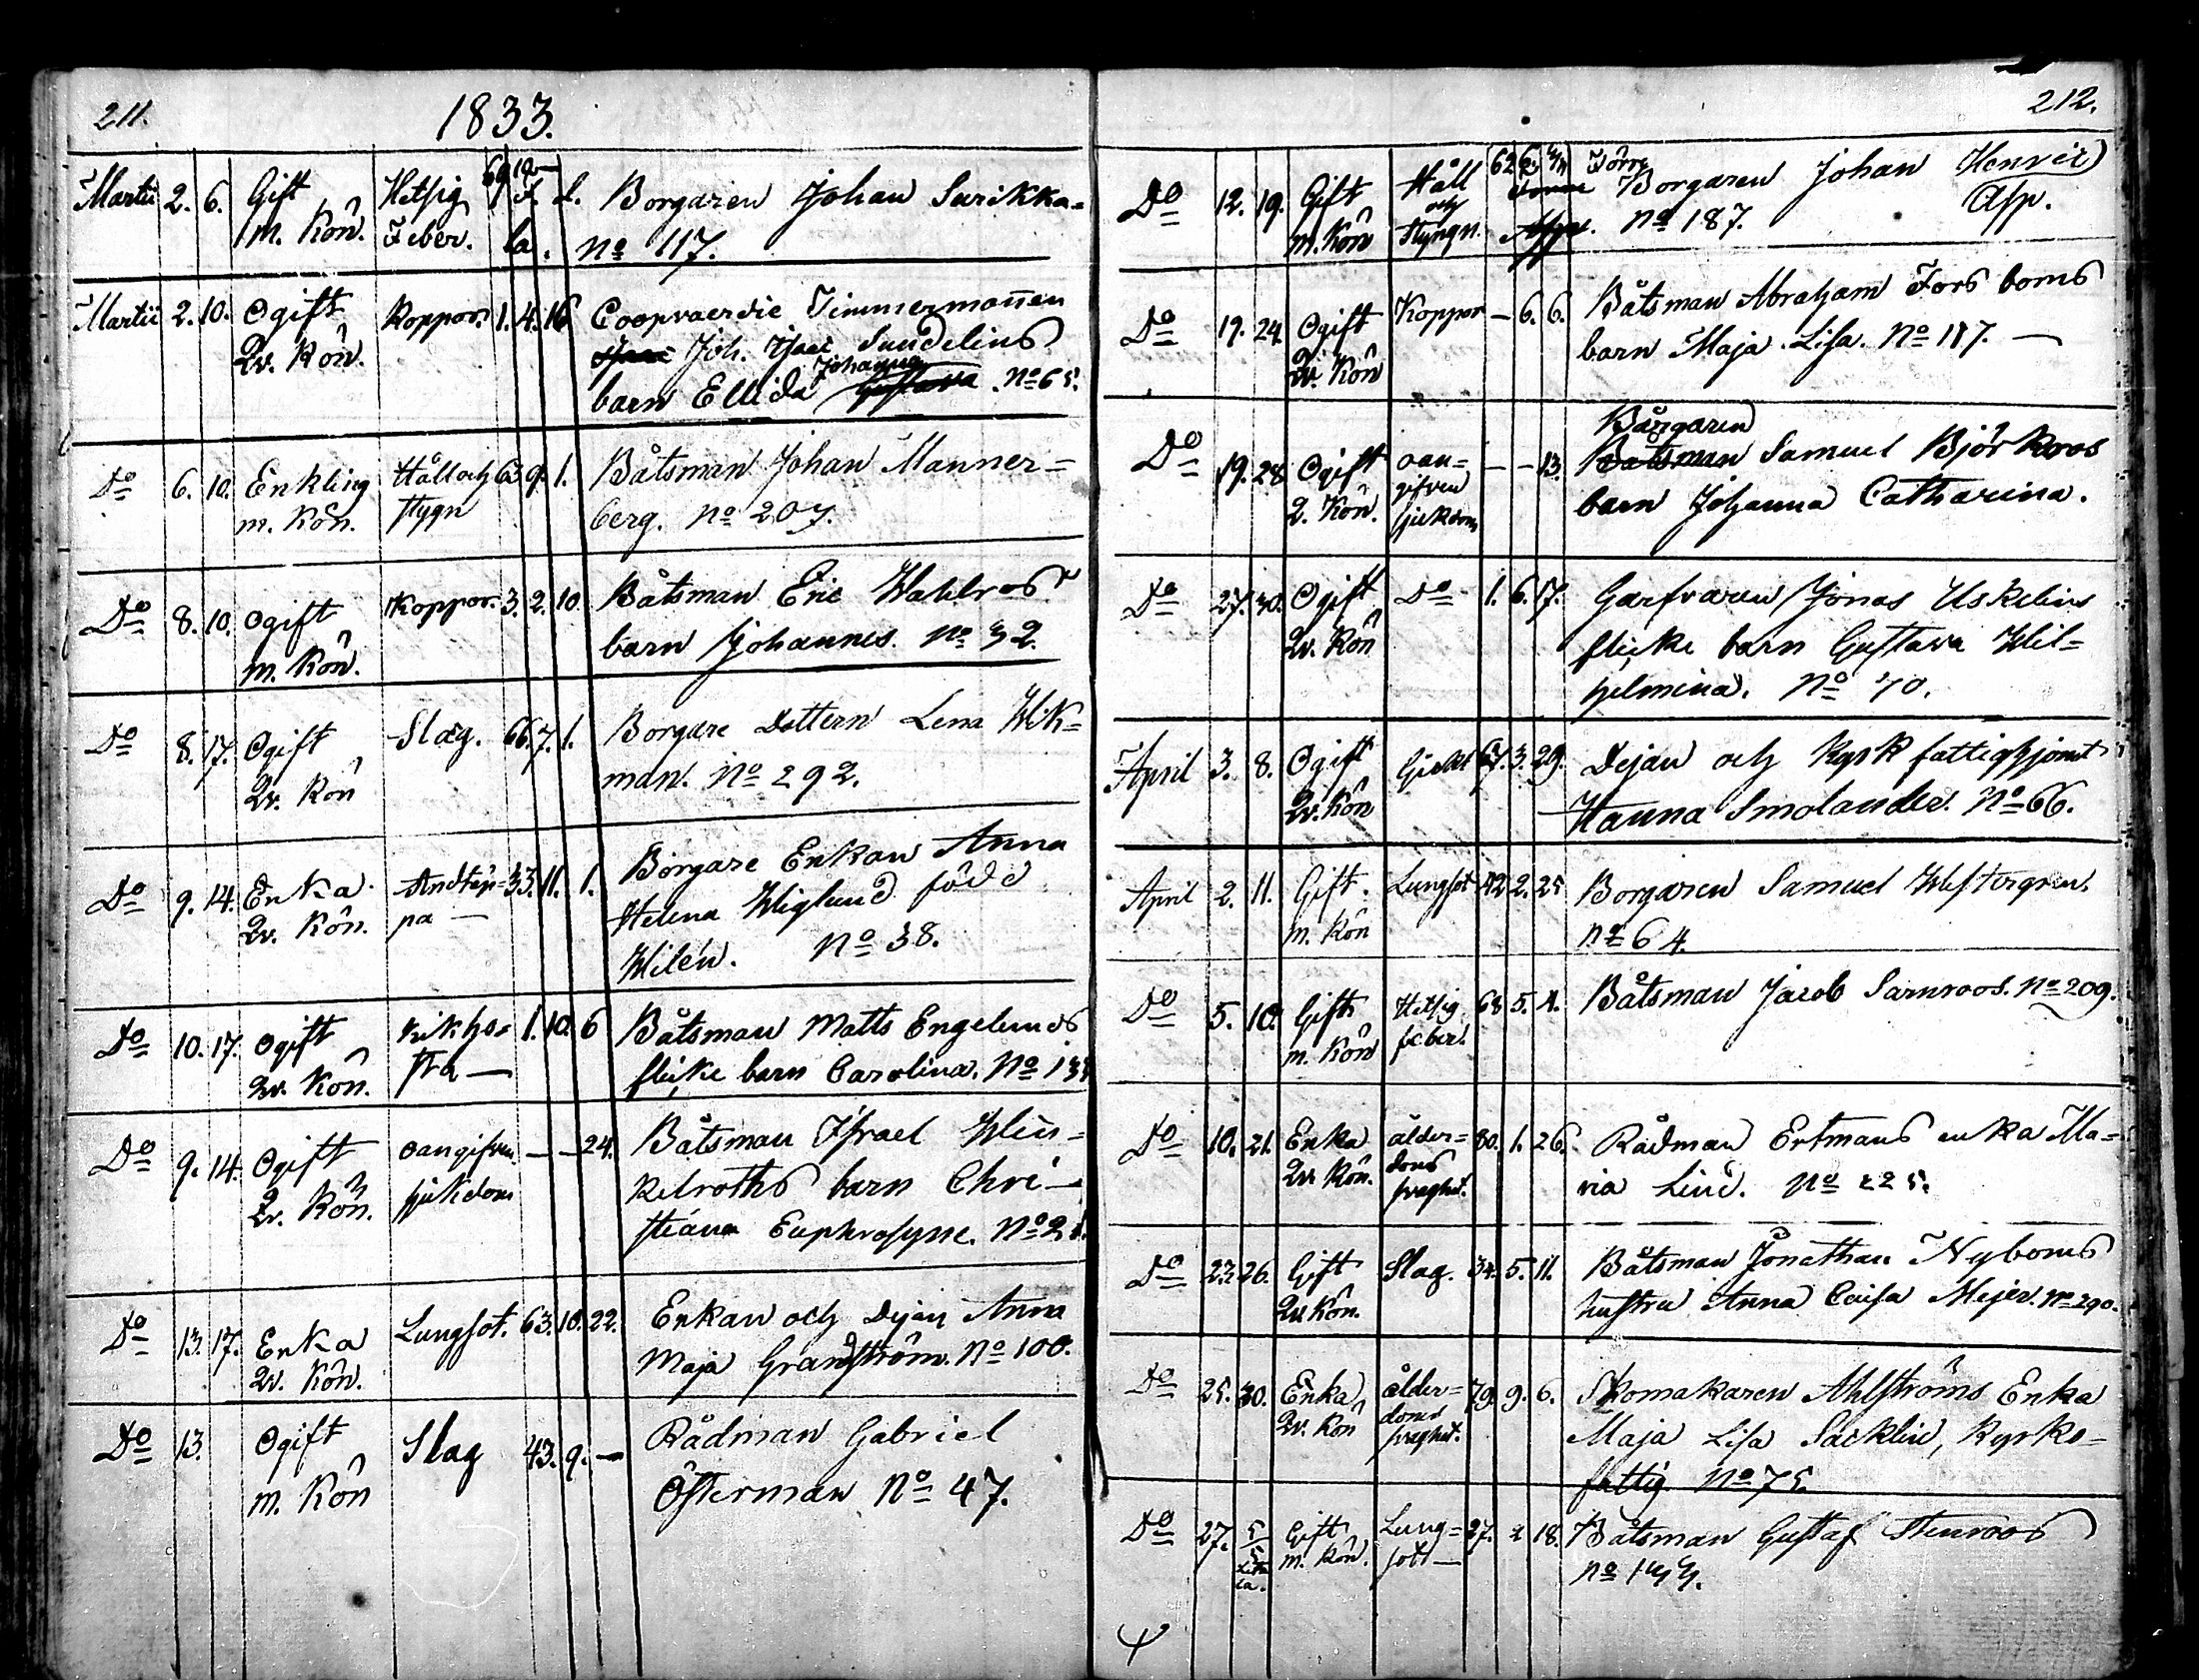 211.
1833.
Martii 2. 6. Gift Hetsig 69 10 Borgaren Johan Surikka=
m. Kön. Feber. la. No 117.
Martii 2. 10. Ogift Koppor. 1. 4. 16 Coopvaerdie Timmermannen
Qv. Kön. Joh. Isaac Sundelius
Johanna
barn Ellida Gustava No 65.
Do 6. 10. Enkling Håll och 63 9. 1. Båtsman Johan Manner=
m. Kön. stygn berg. No 207.
Do 8. 10. Ogift Koppor. 3. 2. 10 Båtsman Eric Wahlros
m. Kön. barn Johannes. No 32.
Do 8. 17. Ogift Slag. 66. 7. 1. Borgare Dottern Lena Wik=
Qv. Kön man. No 292.
Do 9. 14. Enka Andtäp= 33. 11. 1. Borgare Enkan Anna
Qv. Kön. pa — Helena Wiglund född
Wilén. No 38.
Do 10. 17. Ogift Kikho= 1. 10. 6 Båtsman Matts Engelunds
Qv. Kön. sta — flicke barn Carolina. No
Do 9. 14. Ogift oangifven — — 24. Båtsman Israel Win=
Qv. Kön. sjukdom kelroths barn Chri=
stiana Euphrosyne. No
Do 13. 17. Enka Lungsot. 63. 10. 22. Enkan och Dejan Anna
Qv. Kön. Maja Grandström. No 100.
Do 13. Ogift Slag 43. 9. — Rådman Gabriel
m. Kön Österman No 47.
212.
Do 12. 19. Gift Håll 62 6. Förre Borgaren Johan Henric
m. Kön och Styngn. No 187. Asp.
Do 19. 24. Ogift Koppor — 6. 6. Båtsman Abraham Forsboms
Qv. Kön barn Maja Lisa. No 117. —
Borgaren
Do 19. 28 Ogift oan= — — 13. Båtsman Samuel Björkroos
Q. Kön. gifven barn Johanna Catharina.
sjukdom
Do 27. 30. Ogift Do 1. 6. 17. Garfvaren Jonas Uskelins
Qv. Kön flicke barn Gustava Wil=
helmina. No 70.
April 3. 8. Ogift Gickt 67. 3. 29. Dejan och Kyrk fattighjonet
Qv. Kön Hanna Smolander. No 66.
April 2. 11. Gift. Lungsot 42 2. 25 Borgaren Samuel Westergren.
m. Kön No 64.
Do 5. 10. Gift Hetsig 68 5. 1. Båtsman Jacob Sarnroos. No 209.
m. Kön feber.
Do 10. 21. Enka ålder= 80. 1. 26. Rådman Ertmans enka Ma=
Qv. Kön. doms ria Lind. No 225.
svaghet.
Do 23. 26. Gift Slag. 34. 5. 11. Båtsman Jonathan Nyboms
Qv Kön. hustru Anna Caisa Mejer. No 290.
Do 25. 30. Enka ålder= 79. 9. 6. Skomakaren Ahlströms Enka
Qv. Kön doms Maja Lisa Säcklin, Kyrko=
svaghet. fattig. No 75.
Do 27. 5/5 Gift Lung= 27. 2 18. Båtsman Gustaf Stenroos
m. Kön. sot — No 144.